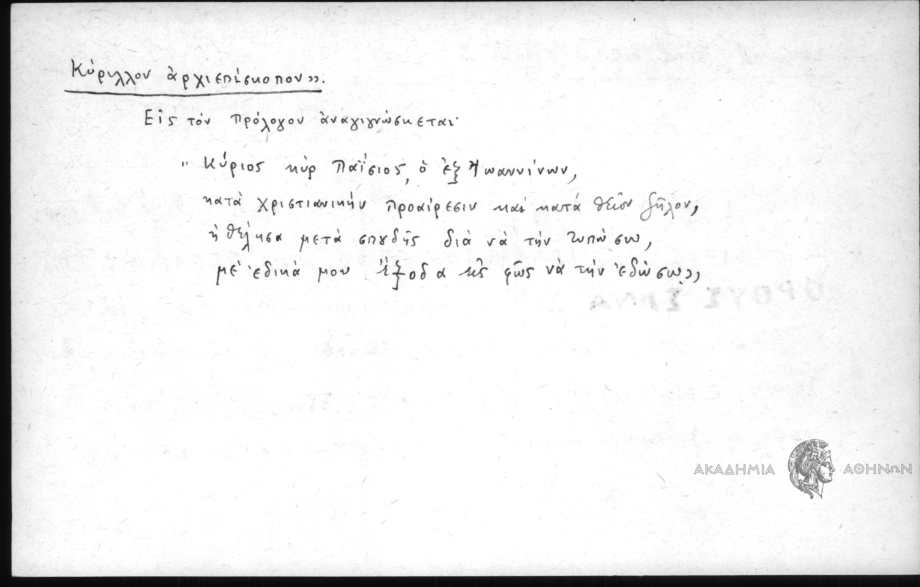 Κύριλλον ἀρχιεπίσκοπον».
Εἰς τόν πρόλογον ἀναγιγνώσκεται·
"Κύριος κύρ Παΐσιος, ὁ ἐξ Ἰωαννίνων,
κατά χριστιανικήν προαίρεσιν καί κατά θεῖον ζῆλον,
ἠθέλησα μετά σπουδῆς διά νά τήν τυπώσω,
μέ ἐδικά μου ἔξοδα εἰς φῶς νά τήν ἐδώσω»
ΑΚΑΔΗΜΙΑ ΑΘΗΝΩΝ